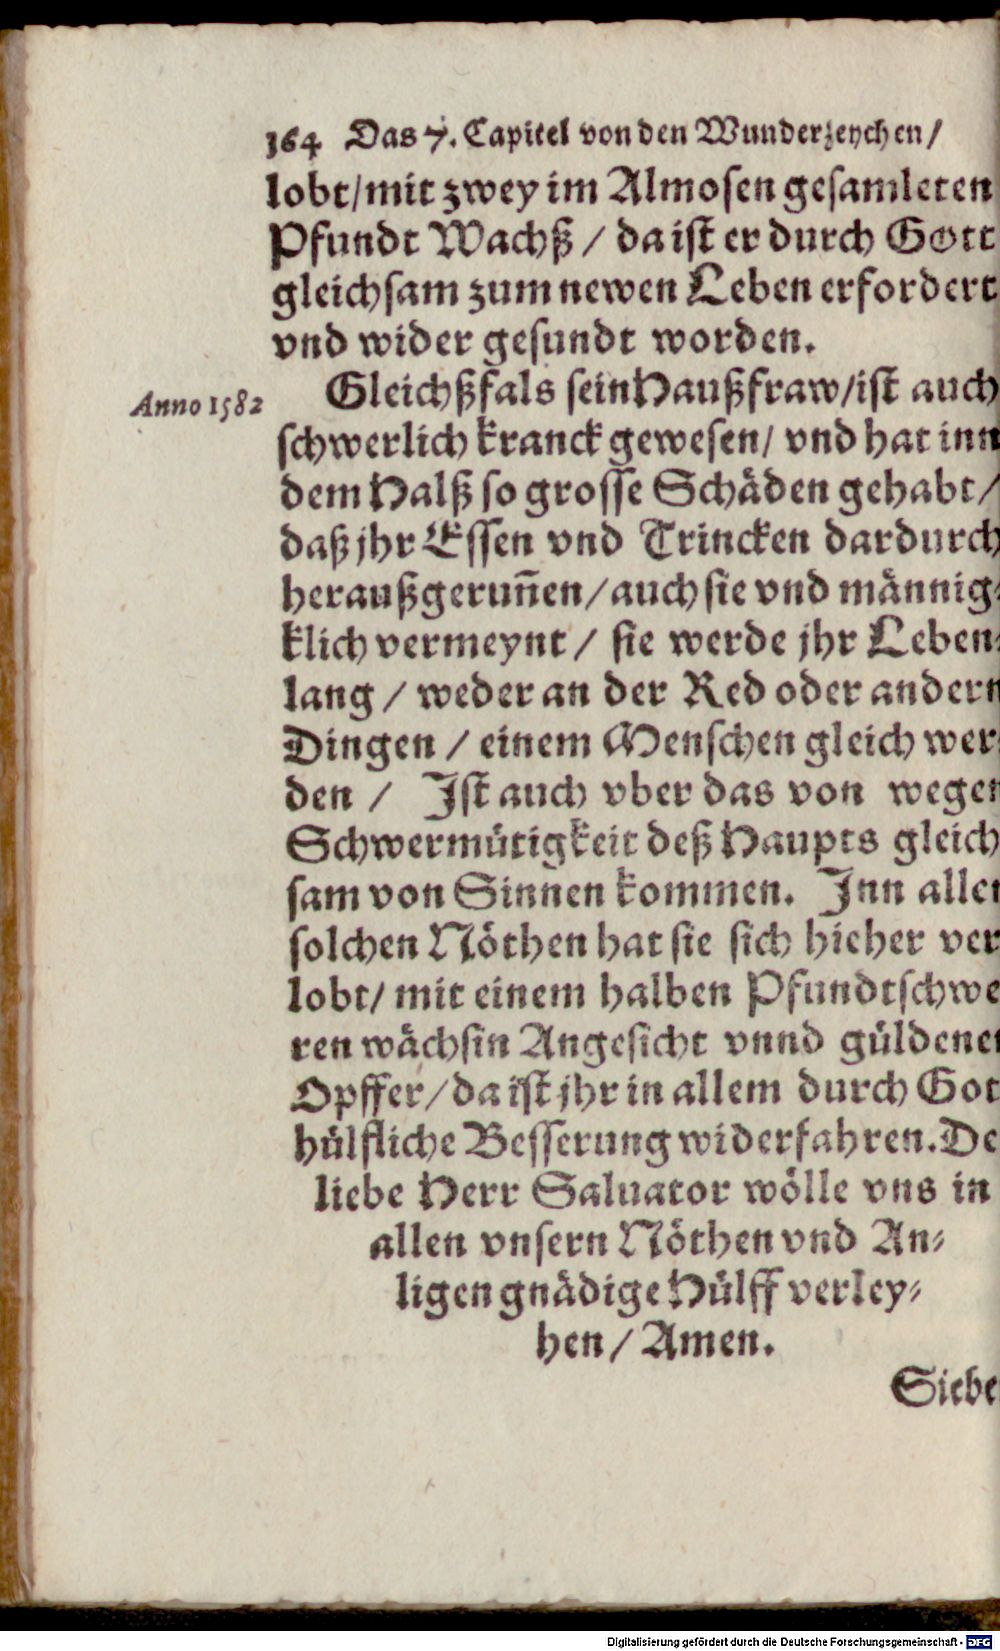 164 Das 7. Capitel von den Wunderzeychen/
lobt/mit zwey im Almosen gesamleten
Pfundt Wachß / da ist er durch Gott
gleichsam zum newen Leben erfordert
vnd wider gesundt worden.
Anno 1582
Gleichßfals sein Haußfraw/ist auch
schwerlich kranck gewesen/ vnd hat inn
dem Halß so grosse Schäden gehabt/
daß jhr Essen vnd Trincken dardurch
heraußgeruñen/auch sie vnd männig⸗
klich vermeynt / sie werde jhr Leben⸗
lang / weder an der Red oder andern
Dingen / einem Menschen gleich wer
den / Ist auch vber das von wegen
Schwermütigkeit deß Haupts gleich
sam von Sinnen kommen. Inn allen
solchen Nöthen hat sie sich hieher ver
lobt/ mit einem halben Pfundtschwe
ren wächsin Angesicht vnnd güldenen
Opffer/da ist jhr in allem durch Got
hülfliche Besserung widerfahren. De
liebe Herr Saluator wölle vns in
allen vnsern Nöthen vnd An⸗
ligen gnädige Hülff verley⸗
hen/ Amen.
Siebe
Digitalisierung gefördert durch die Deutsche Forschungsgemeinschaft - DFG